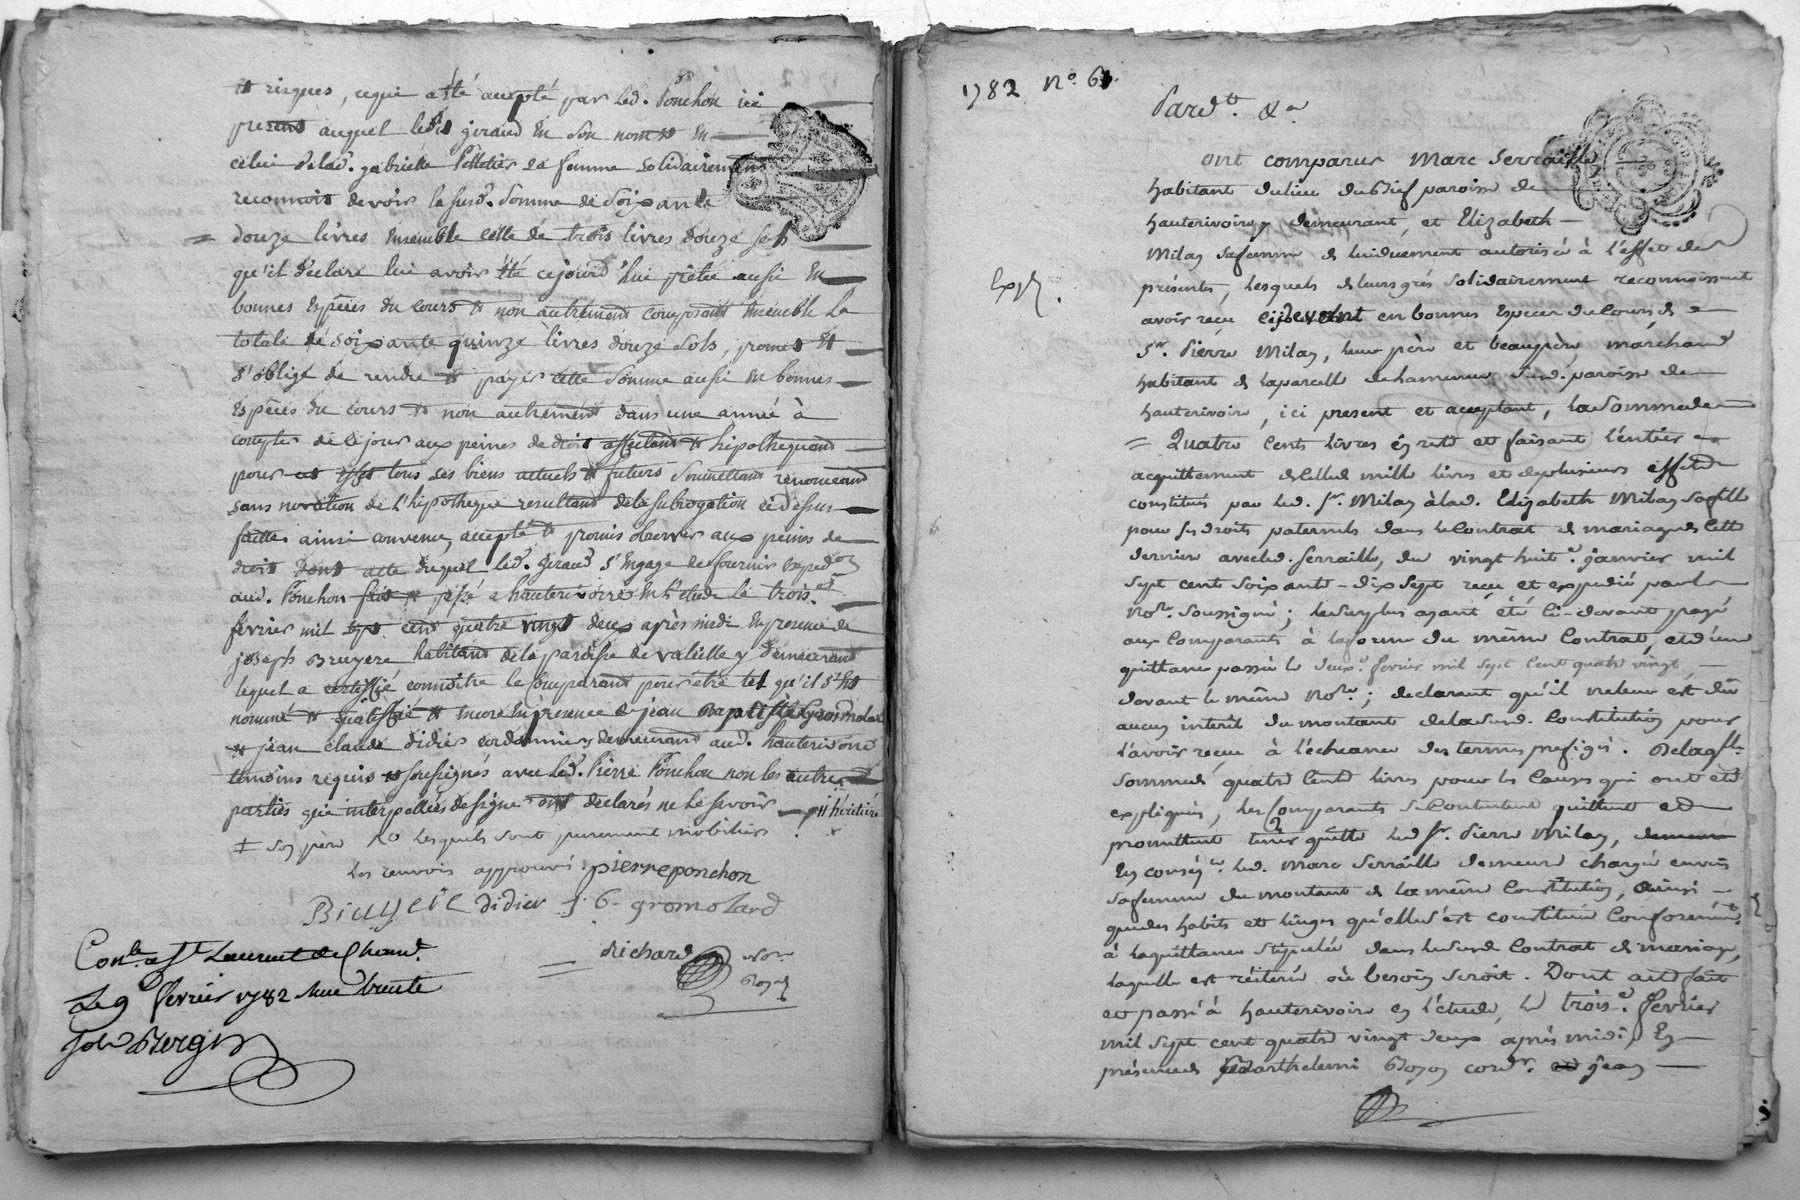 & risques, cequi a été accepté par led. Ponchon ici
present auquel ledit giraud En son nom & En
celui de lad. gabrielle Pelletier sa femme solidairement
reconnoit devoir la susd. Somme de Soixante
= douze livres Ensemble celle de trois livres douze sols
qu'il declare lui avoir Eté cejourd'hui prêtée aussi En
bonnes Especes du cours & non autrement composant Ensemble la
totale de soixante quinze livres douze sols, promet &
s'oblige de rendre & payer cette Somme aussi En bonnes
Especes du cours & non autrement dans une année à
compter de ce jour aux peines de droit affectant & hipothequant
pour cet effet tous ses biens actuels & futurs Soumettant renonceant
sans novation de l'hipotheque resultant de la subrogation cidessus
faitte, ainsi convenu, accepté & promis observer aux peines de
droit dont acte duquel led. Giraud s'Engage de fournir Exped.on
aud. Ponchon fait & passé a hauterivoire En l'etude le trois.
fevrier mil sept cent quatre vingt deux après midi En presence de
joseph Bruyere habitant de la paroisse de valeille y demeurant
lequel a certiffié connoître le Comparant pour être tel qu'il s'est
nommé & qualiffié & Encore En presence de jean Baptiste Gromolard
& jean claude didier cordonnier demeurant aud. hauterivoire
temoins requis & soussignés avec led. Pierre Ponchon non les autres
parties qui interpellées de signer ont declarés ne le savoir # héritière
‡ son père & lesquels sont purement mobiliers
Les renvois approuvés pierre ponchon
Bruyere didier j. B. gromolard
= richard Not.re Royal
Con.lé a St Laurent de Cham.t
Le 9e fevrier 1782 Reçu trente
sols Bergir
1782 No. 61.
Pard.t &a
ont comparus Marc Serraille
habitant du lieu du Brief paroisse de
hauterivoire y demeurant, et Elizabeth
Milan sa femme de lui duement autorisée à l'effet des
Exp.
présentes, Lesquels de leurs grés Solidairement reconnoissent
avoir reçu cidevant en bonnes Especes du Cours de
Sr. Pierre Milan, leur père et beaupère, marchand
habitant de la parcelle de hameau Susd. paroisse de
hauterivoire, ici present et acceptant, la somme de
= Quatre Cents livres en reste et faisant l'entier
acquittement de Celle de mille livres et de plusieurs effets
constitués par led. Sr. Milan à lad. Elizabeth Milan sa fille
pour ses droits paternels dans le Contrat de mariage de Cette
derniere avec led. Serraille, du vingt huit.e janvier mil
sept cent soixante-dix sept reçu et expedié par le
No.re soussigné; le surplus ayant été ci-devant payé
aux Comparants à la forme du même Contrat, et d'une
quittance passée le deux.e fevrier mil sept Cent quatre vingt,
devant le même No.re; declarant qu'il ne leur est dû
aucun interêt du montant de la susd. Constitution pour
l'avoir reçue à l'échéance des termes prefigés. De laq.lle
somme de quatre Cents livres pour les Causes qui ont été
expliquées, les Comparants se Contentent quittent et
promettent tenir quitte led Sr. Pierre Milan, demeure
En conséq.ce led. Marc Serraille demeure chargé envers
sa femme du montant de la même Constitution, ainsi
que des habits et linges qu'elle s'est constituée Conformément
à la quittance stipulée dans le susd Contrat de mariage,
laquelle est réiterée où besoin seroit. Dont acte fait
et passé à hauterivoire en l'étude, le trois.e fevrier
mil sept cent quatre vingt deux après midi, En
présence de Barthelemi Boyon cord.r et jean